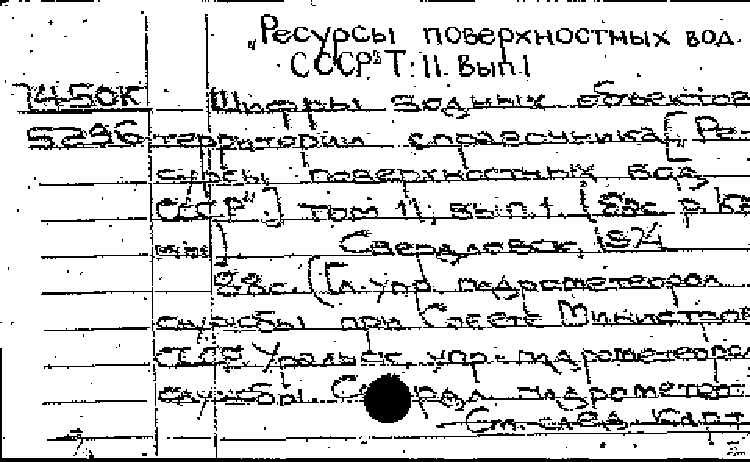 „Ресурсы поверхностных вод
СССР" Т. 11. Вып. 1
7450К Шифры водных объектов
5296 территории справочника [„Ре-
сурсы поверхностных вод
СССР".] Том 11, вып. 1. (Басс. р. Ка
) Свердловск,
28с. (Гл. упр. гидрометеорол.
службы при Совете Министров
СССР. Уральск. упр. гидрометеорол.
службы. гидрометеор.
См. след. карт